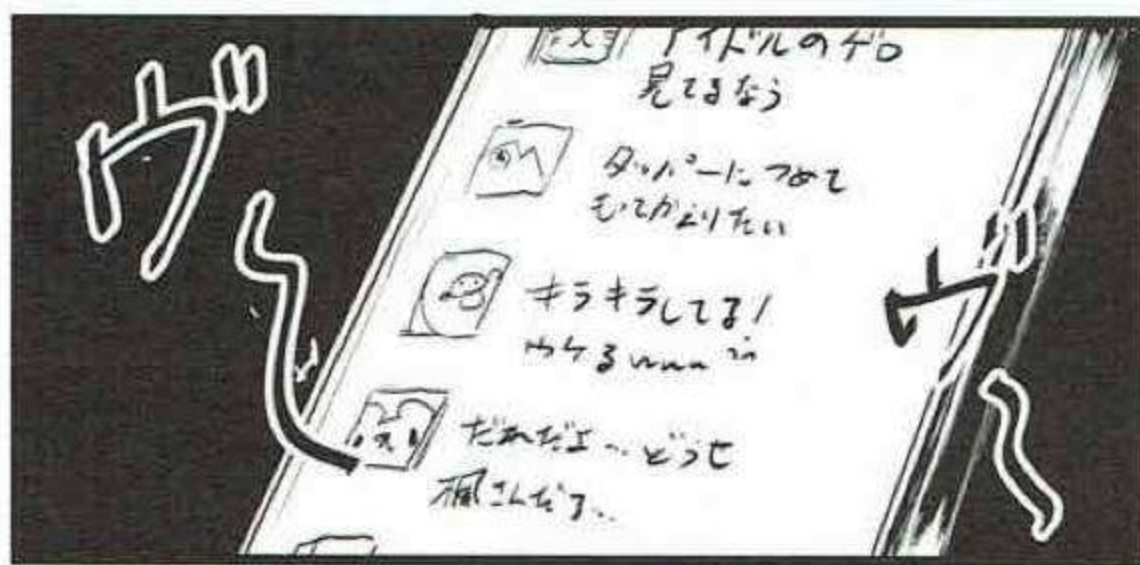 アイドルのゲロ
見てるなう
タッパーにつめて
もってかえりたい
キラキラしてる!
ウケるwww
だれだよ…どうせ
楓さんだろ…
ヴ
ヴ